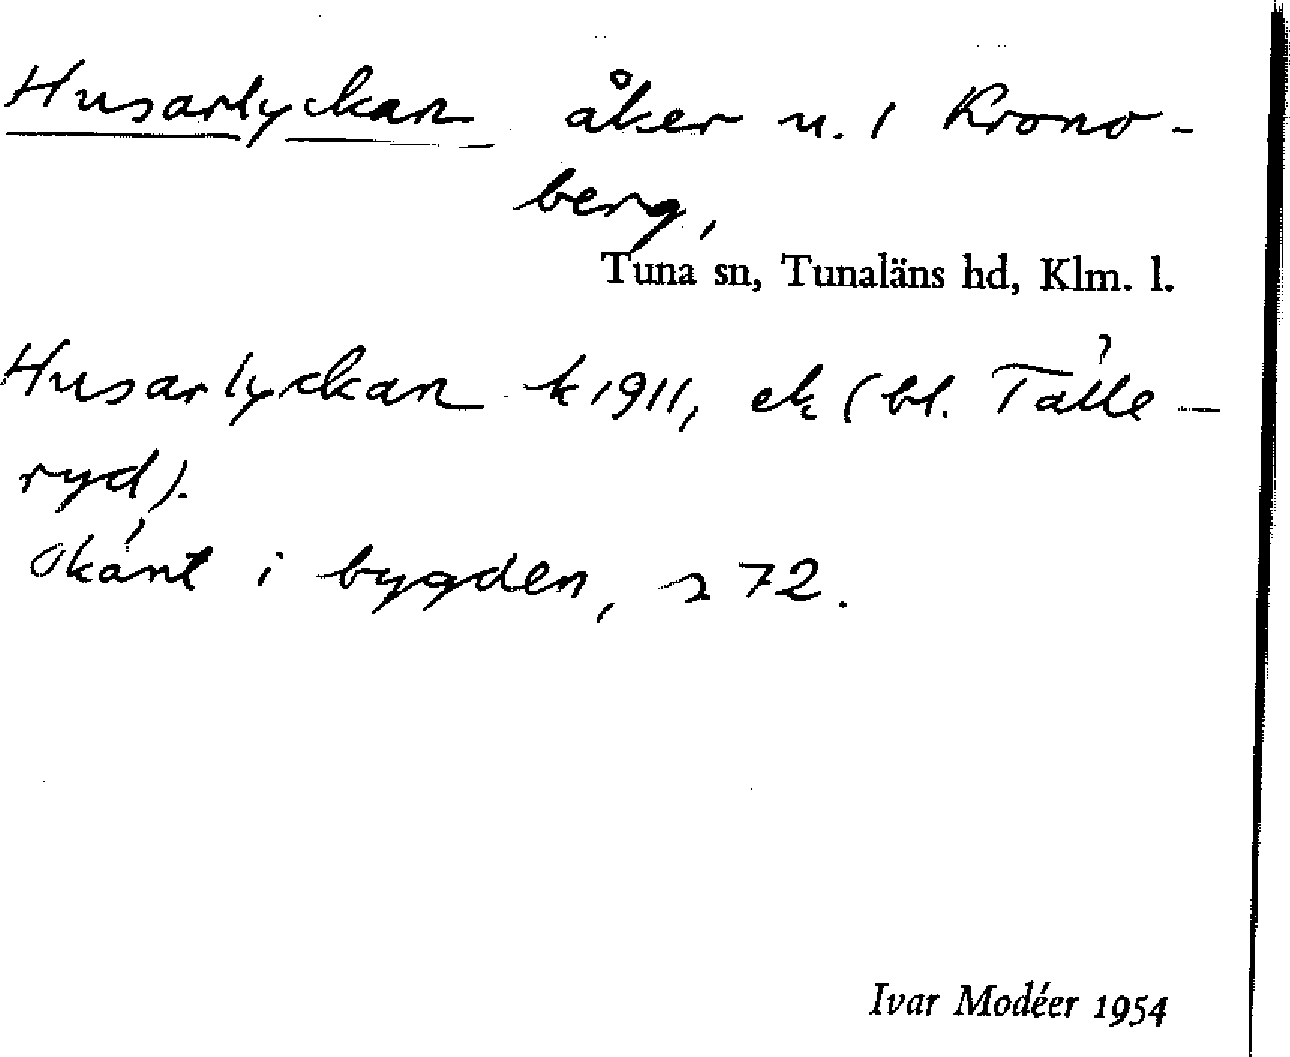 Husarlyckan åker u. 1 Krono-
berg,
Tuna sn, Tunaläns hd, Klm. l.
Husarlyckan k 1911, ek (bl. Tälle-
ryd).
Okänt i bygden, s 72.
Ivar Modéer 1954